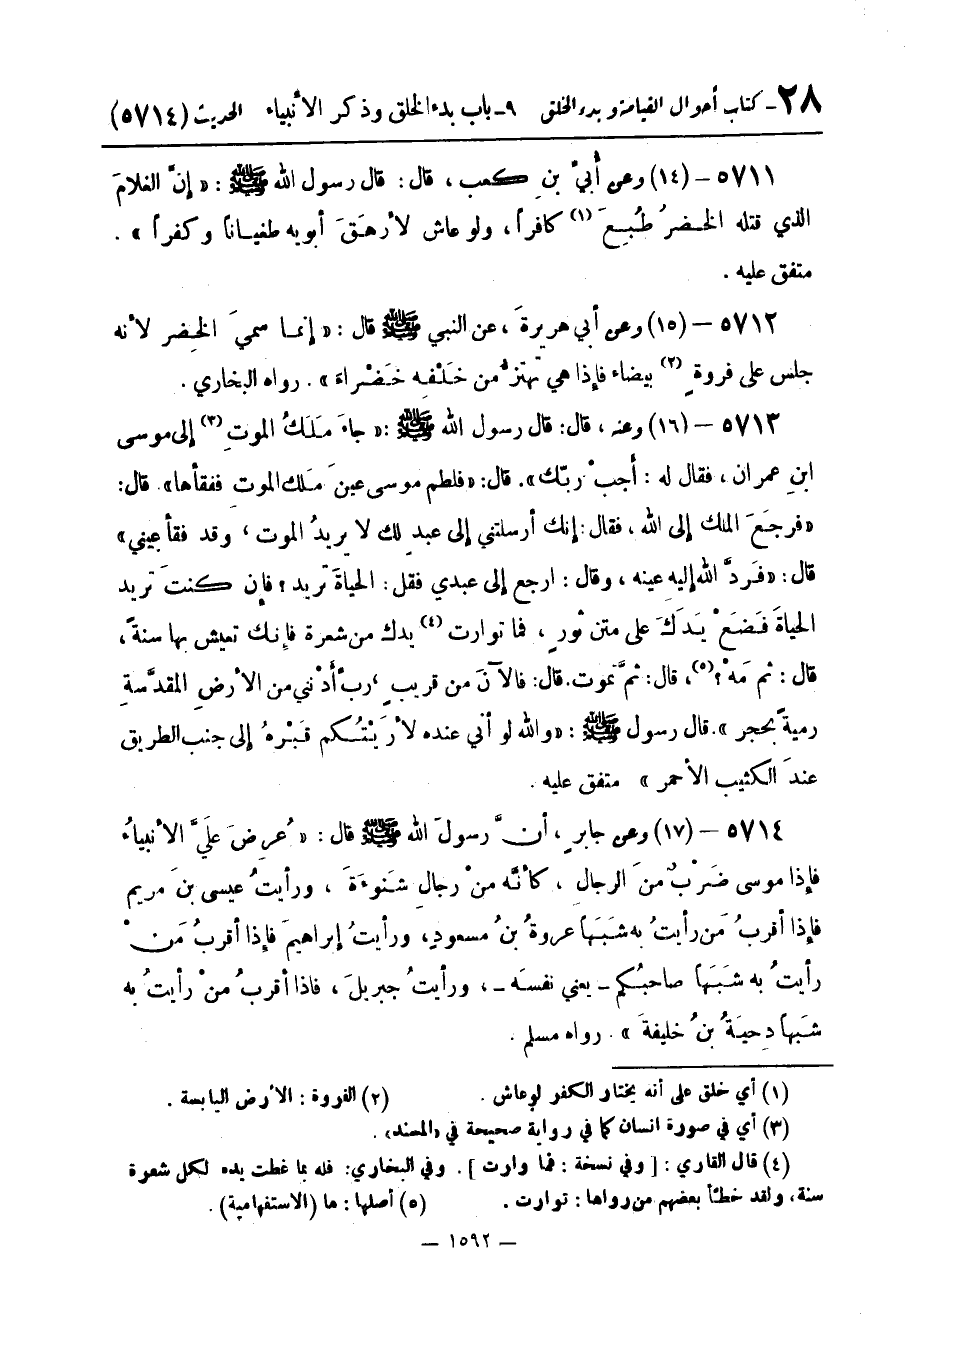 ٢٨ـ كتاب أحوال القيامة وبدء الخلق ٩ـ باب بدء الخلق وذكر الأنبياء الحديث (٥٧١٤)
٥٧١١ – (١٤) وعن أُبيْ بنِ كعب ، قال : قال رسول الله ﷺ : « إنَّ الغلامَ
الذي قتله الخضرُ طُبِعَ (١) كافراً ، ولو عاش لأرهَقَ أبويه طغياناً وكفراً » .
متفق عليه .
٥٧١٢ – (١٥) وعن أبي هريرةَ ، عن النبي ﷺ قال : « إنما سميَ الخضر لأنه
جلس على فروةٍ (٢) بيضاء فإذا هي تهتزُّ من خَلْفِه خَضْراءَ » . رواه البخاري .
٥٧١٣ – (١٦) وعنه ، قال: قال رسول الله ﷺ :« جاءَ مَلَكُ الموتِ (٣) إلى موسى
ابنِ عمران ، فقال له : أجبْ ربّك» . قال: «فلطم موسى عينَ مَلكِ الموتِ ففقأها» . قال:
«فرجَعَ الملك إلى الله ، فقال: إنك أرسلتني إلى عبدٍ لك لا يريدُ الموت ، وقد فقأ عيني»
قال: «فَردَّ الله إليه عينه ، وقال : ارجع إلى عبدي فقل: الحياةَ تريد ؟ فإن كنتَ تريد
الحياةَ فَضَعْ يَدَكَ على متن ثورٍ ، فما توارت (٤) يدك من شعرة فإنك تعيش بها سنةً ،
قال : ثم مَهْ؟ (٥) ، قال: ثمَّ تموت. قال: فالآنَ من قريبٍ ، ربّ أدْنني من الأرضِ المقدَّسةِ
رميةً بحجر » . قال رسول ﷺ : «والله لو أني عنده لأرَيْتُكم قَبْرهُ إلى جنب الطريق
عندَ الكثيب الأحمر » متفق عليه .
٥٧١٤ – (١٧) وعن جابرٍ ، أنَّ رسولَ الله ﷺ قال : « عُرِضَ عَلَيَّ الأنبياءُ
فإذا موسى ضَرْبٌ منَ الرجالِ ، كأنَّه منْ رجالِ شنوءَةَ ، ورأيتُ عيسى بنَ مريم
فإذا أقربُ مَن رأيتُ به شبَهاً عروةُ بنُ مسعودٍ، ورأيتُ إبراهيمَ فإذا أقربُ مَنْ
رأيتُ به شَبَهاً صاحبُكم ـ يعني نفسَه ـ ، ورأيتُ جبريلَ ، فاذا أقربُ منْ رأيتُ به
شبَهاً دِحيَةُ بنُ خليفةَ » . رواه مسلم .
(١) أي خلق على أنه يختار الكفر لوعاش . (٢) الفروة : الأرض اليابسة .
(٣) أي في صورة انسان كما في رواية صحيحة في «المسند» .
(٤) قال القاري : [ وفي نسخة : فما وارت ] . وفي البخاري: فله بما غطت يده لكل شعرة
سنة، ولقد خطئأ بعضهم من رواها : توارت . (٥) أصلها : ما (الاستفهامية) .
— ١٥٩٢ —